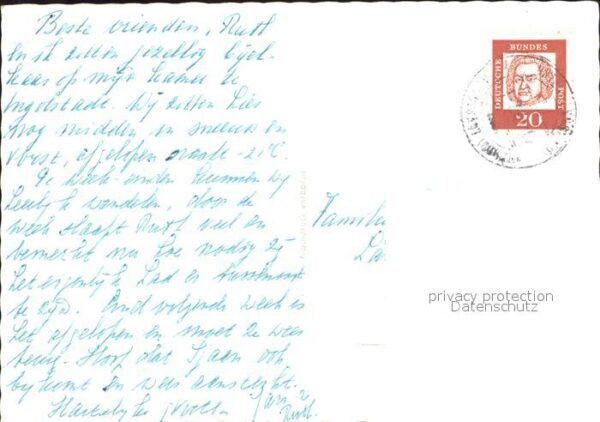 Beste vrienden, Ruth
en ik zitten gezellig bijel-
kaar op mijn kamer te
Ingolstadt. Wij zitten hier
nog midden in sneeuw en
vorst, afgelopen nacht -21°C.
De week-enden kunnen wij
heerlijk wandelen, door de
week slaapt Ruth veel en
bemerkt nu hoe nodig zij
het eigenlijk had er
te zijn. Eind volgende week is
het afgelopen en moet ze weer
terug. Hoop dat Tjaan ook
bijkomt en weer aansterkt.
Hartelijke groeten
Ruth.
DEUTSCHE
BUNDES
POST
20
Familie
privacy protection
Datenschutz